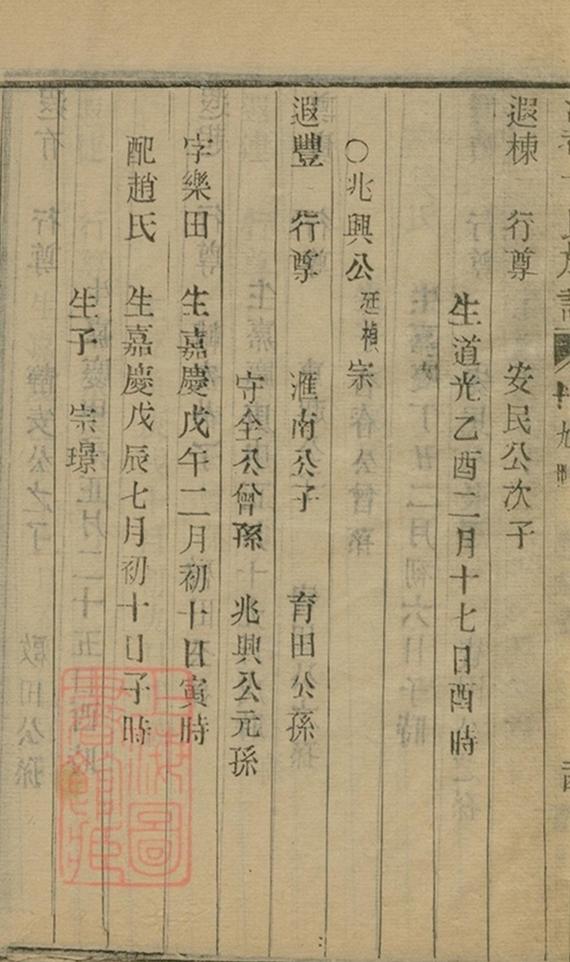 遐棟 行尊 安民公次子
生道光乙酉二月十七日酉時
○兆興公廷楨宗
遐豐 行尊 滙南公子 育田公孫
守全公曾孫 兆興公元孫
字樂田 生嘉慶戊午二月初十日寅時
配趙氏 生嘉慶戊辰七月初十日子時
生子 宗璟